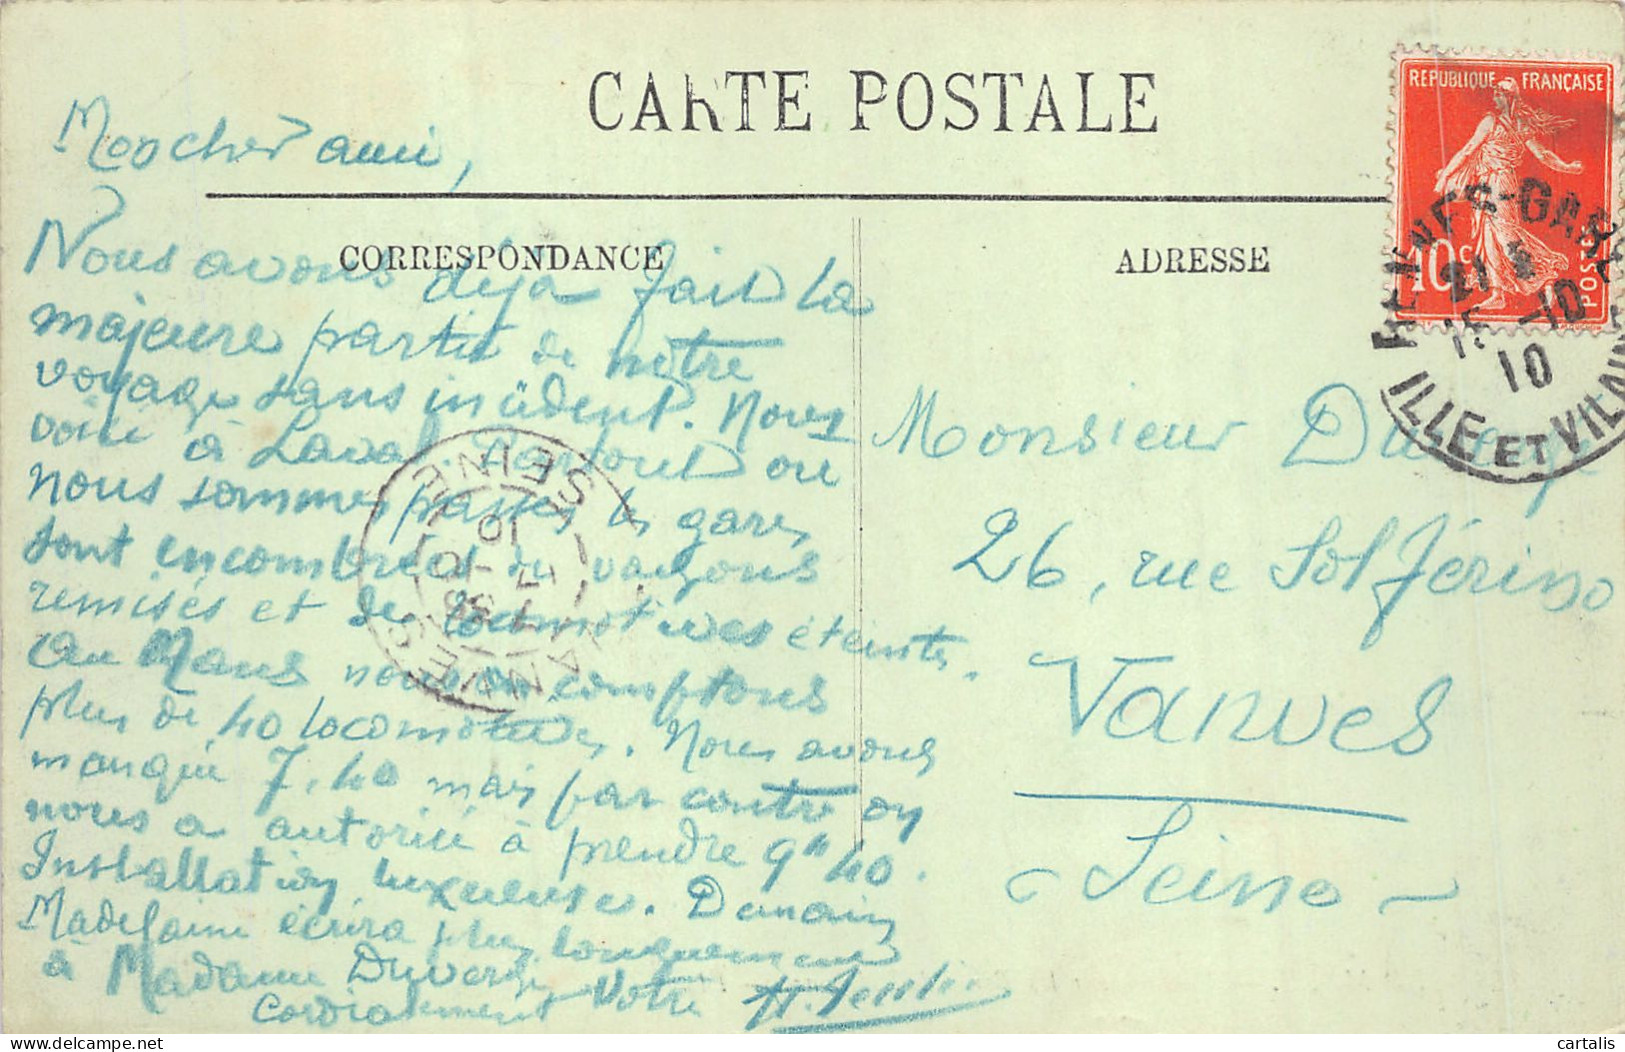 CARTE POSTALE
Mon cher ami,
CORRESPONDANCE
Nous avons déjà fait la
majeure partie de nôtre
voyage sans incident. Nous
voici à Laval. Partout où
nous sommes passés les gares
sont encombrées de wagons
remisés et de locomotives éteintes.
Au Mans nous en comptons
plus de 40 locomotives. Nous avons
manqué 7.40 mais par contre on
nous a autorisé à prendre 9h40.
Installation luxueuse. Demain
Madelaine écrira plus longuement
à Madame Duverge
Cordialement Votre
ADRESSE
REPUBLIQUE FRANÇAISE
10c
POSTES
RENNES-GARE
21
15 -10
10
ILLE ET VILAINE
Monsieur Duverge
26, rue Solférino
Vanves
Seine
VANVES
SEINE
10
cartalis
delcampe.net